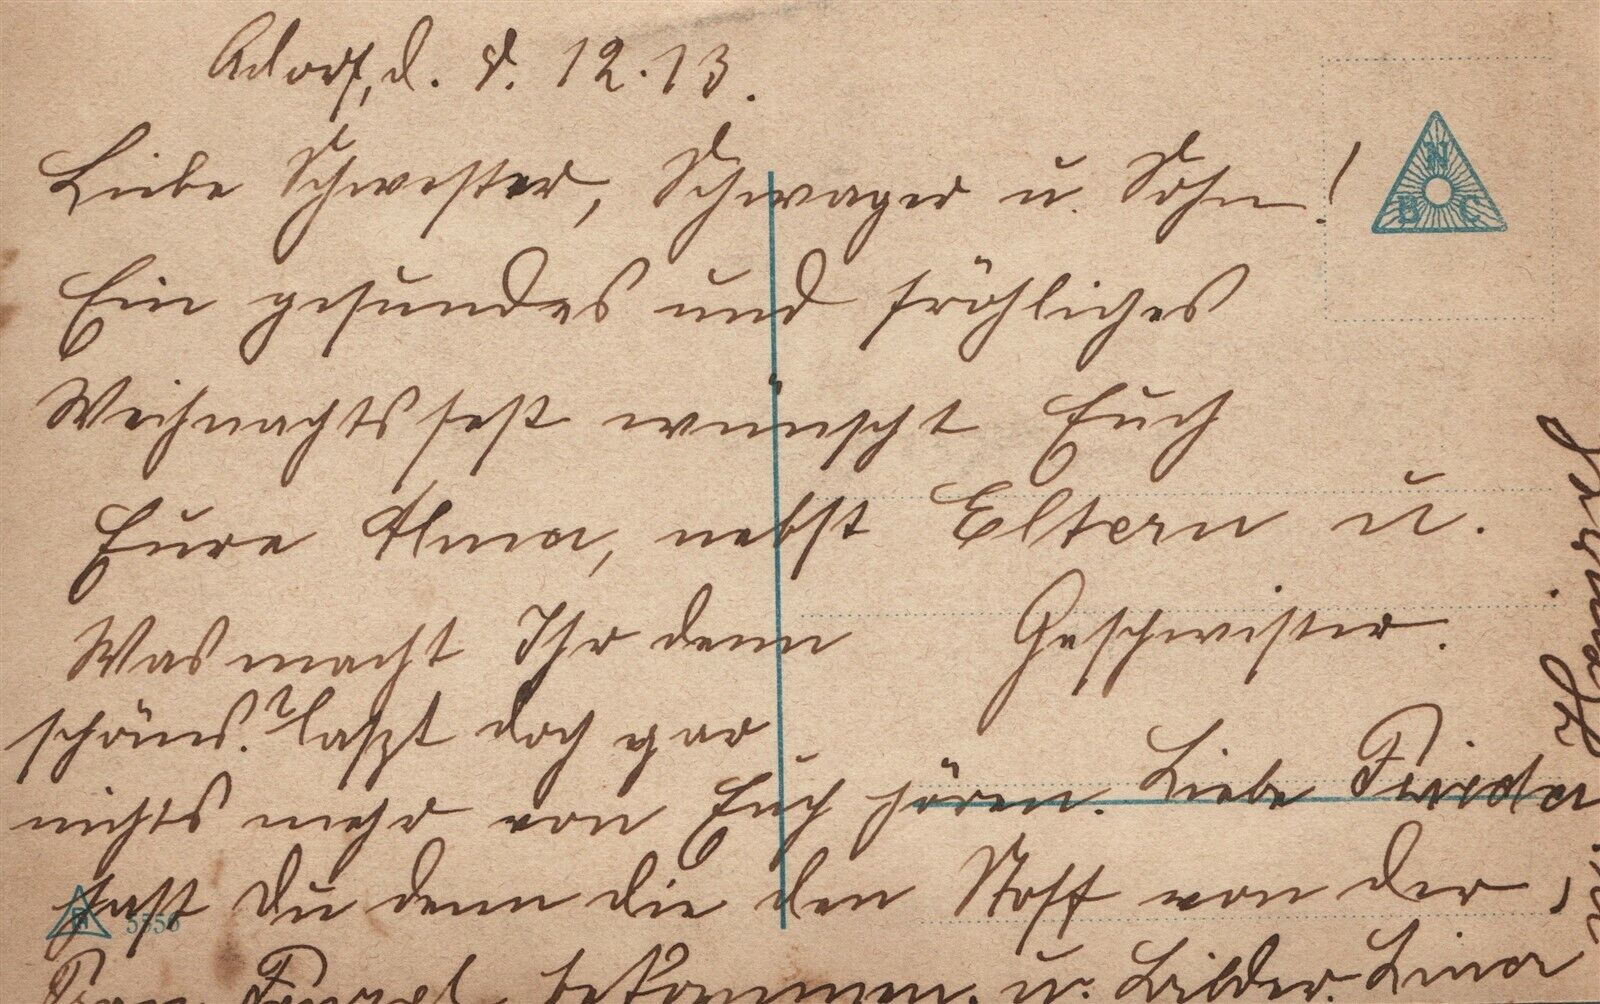 Adorf, d. 8. 12. 13.
Liebe Schwester, Schwager u. Sohn!
Ein gesundes und fröhliches
Weihnachtsfest wünscht Euch
Eure Alma, nebst Eltern u.
Geschwister.
Was macht Ihr denn
schönes? laszt doch gar
nichts mehr von Euch hören. Liebe Frieda
hast Du denn die den Stoff von der
Frau bekommen. u. Bilder. Lina
N
B C
5556